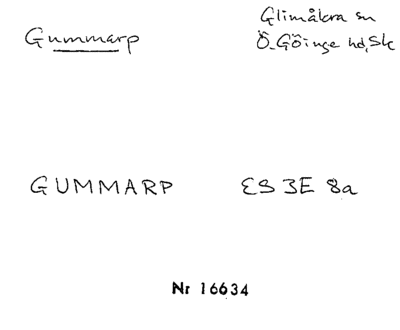 Glimåkra sn
Gummarp Ö. Göinge hd, Sk
GUMMARP ES 3E 8a
Nr 16634